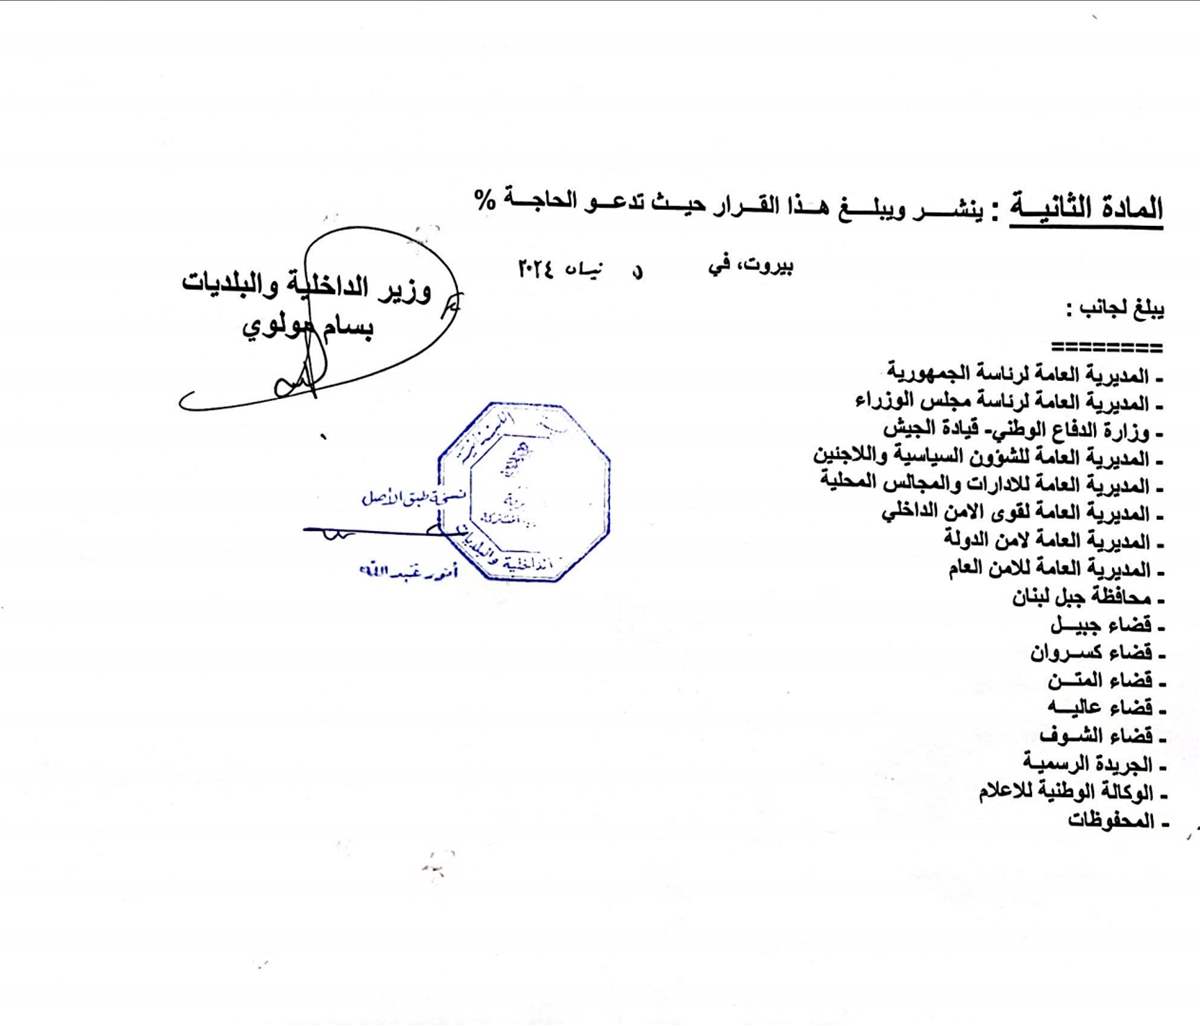 المادة الثانيــة : ينشــر ويبلــغ هــذا القــرار حيــث تدعــو الحاجــة %
بيروت، في ٥ نيسان ٢٠٢٤
وزير الداخلية والبلديات
بسام مولوي
يبلغ لجانب :
========
- المديرية العامة لرئاسة الجمهورية
- المديرية العامة لرئاسة مجلس الوزراء
- وزارة الدفاع الوطني- قيادة الجيش
- المديرية العامة للشؤون السياسية واللاجئين
- المديرية العامة للادارات والمجالس المحلية
- المديرية العامة لقوى الامن الداخلي
- المديرية العامة لامن الدولة
- المديرية العامة للامن العام
- محافظة جبل لبنان
- قضاء جبيــل
- قضاء كسـروان
- قضاء المتــن
- قضاء عاليــه
- قضاء الشـوف
- الجريدة الرسميـة
- الوكالة الوطنية للاعلام
- المحفوظات
نسخة طبق الأصل
أنور عبد الله
الداخلية والبلديات